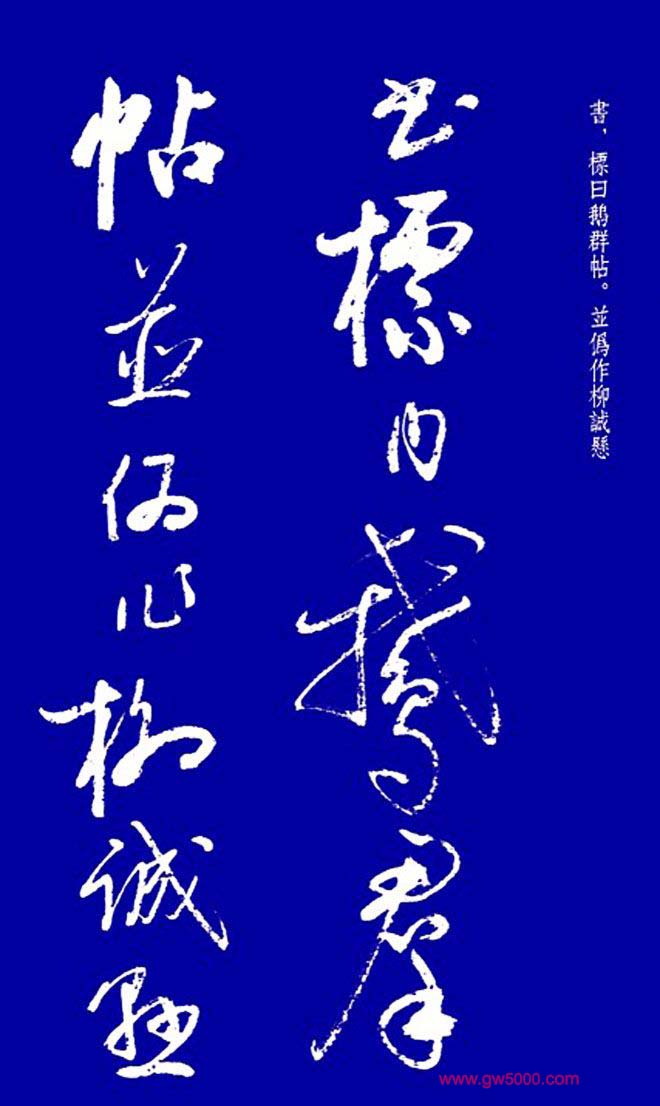 書，標曰鵝群帖。並僞作柳誠懸
书標曰鵝羣
帖並偽作柳誠懸
www.gw5000.com